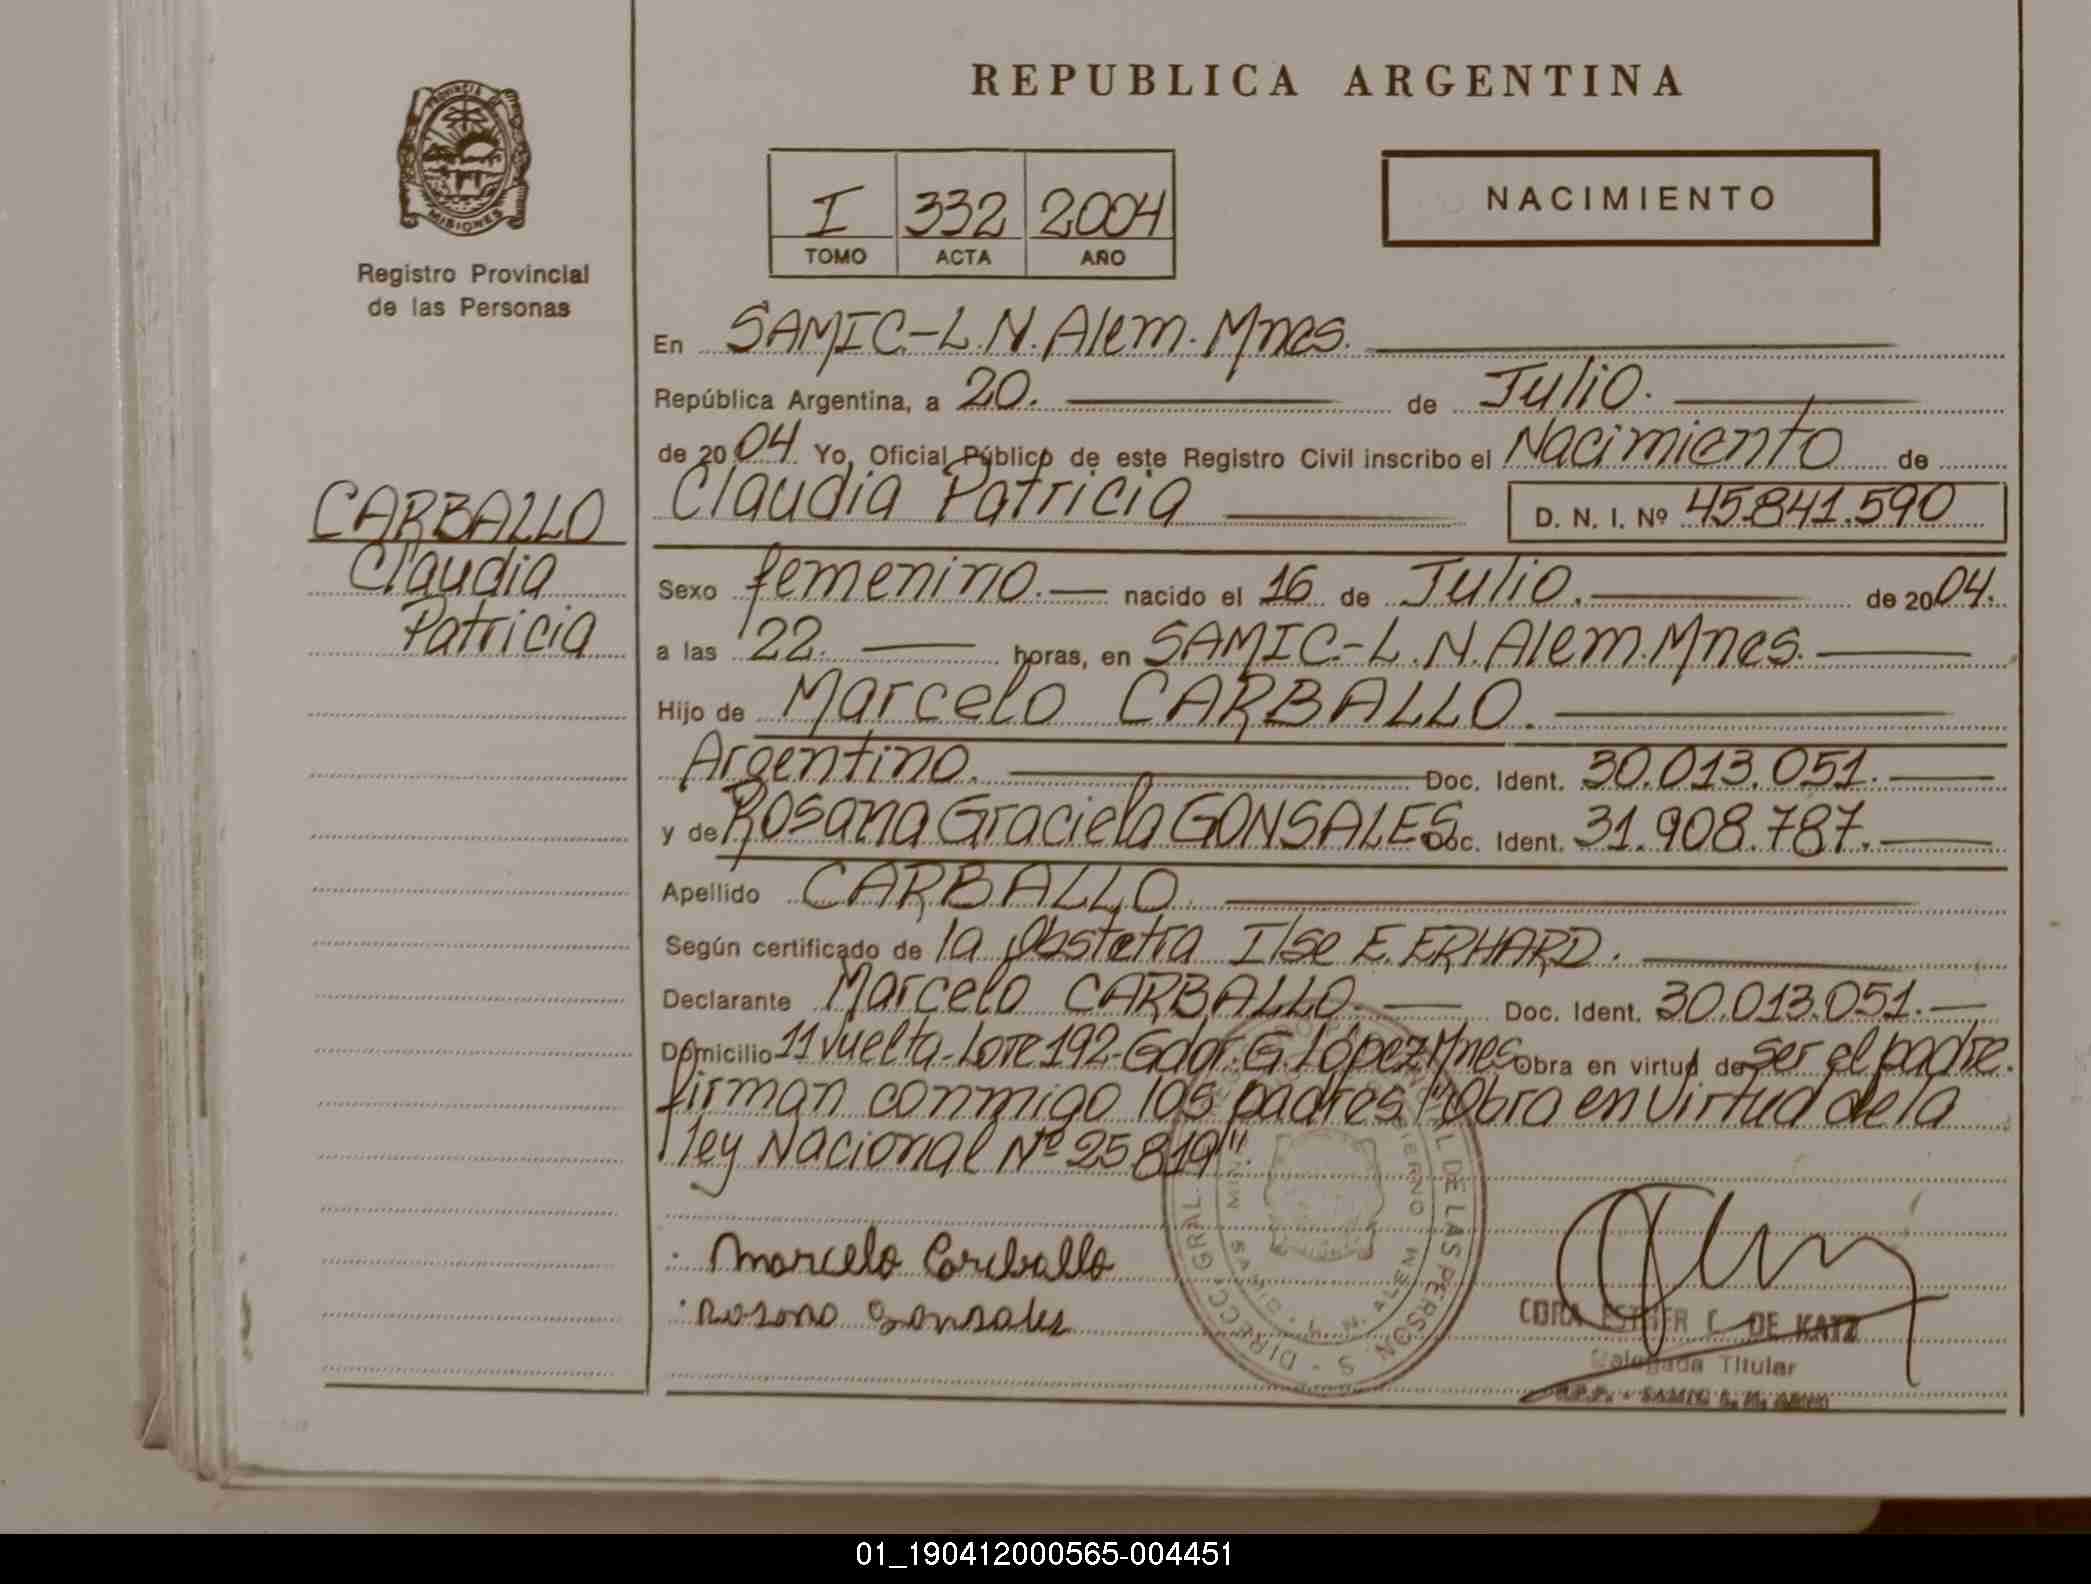 REPUBLICA ARGENTINA
PROVINCIA DE
MISIONES
Registro Provincial
de las Personas
I 332 2004
TOMO ACTA AÑO
NACIMIENTO
En SAMIC-L.N.Alem.Mnes.
República Argentina, a 20. de Julio.
de 2004 Yo, Oficial Público de este Registro Civil inscribo el Nacimiento de
Claudia Patricia D. N. I. Nº 45.841.590
CARBALLO
Claudia
Patricia
Sexo femenino.— nacido el 16 de Julio. de 2004.
a las 22. horas, en SAMIC-L.N.Alem.Mnes.
Hijo de Marcelo CARBALLO.
Argentino. Doc. Ident. 30.013.051.
y de Rosana Graciela GONSALES Doc. Ident. 31.908.787.
Apellido CARBALLO
Según certificado de la Obstetra Ilse E. ERHARD.
Declarante Marcelo CARBALLO. Doc. Ident. 30.013.051.
Domicilio 11 vuelta-Lote 192-Gdor.G.López Mnes Obra en virtud de ser el padre.
firman conmigo los padres "Obra en virtud de la
ley Nacional Nº 25819".
Marcelo Carballo
Rosana Gonsales
DIRECC. GRAL. DE LAS PERSONAS
L. N. ALEM
CORA ESTHER C. DE KATZ
Delegada Titular
R.P.P. - SAMIC L. N. ALEM
01_190412000565-004451